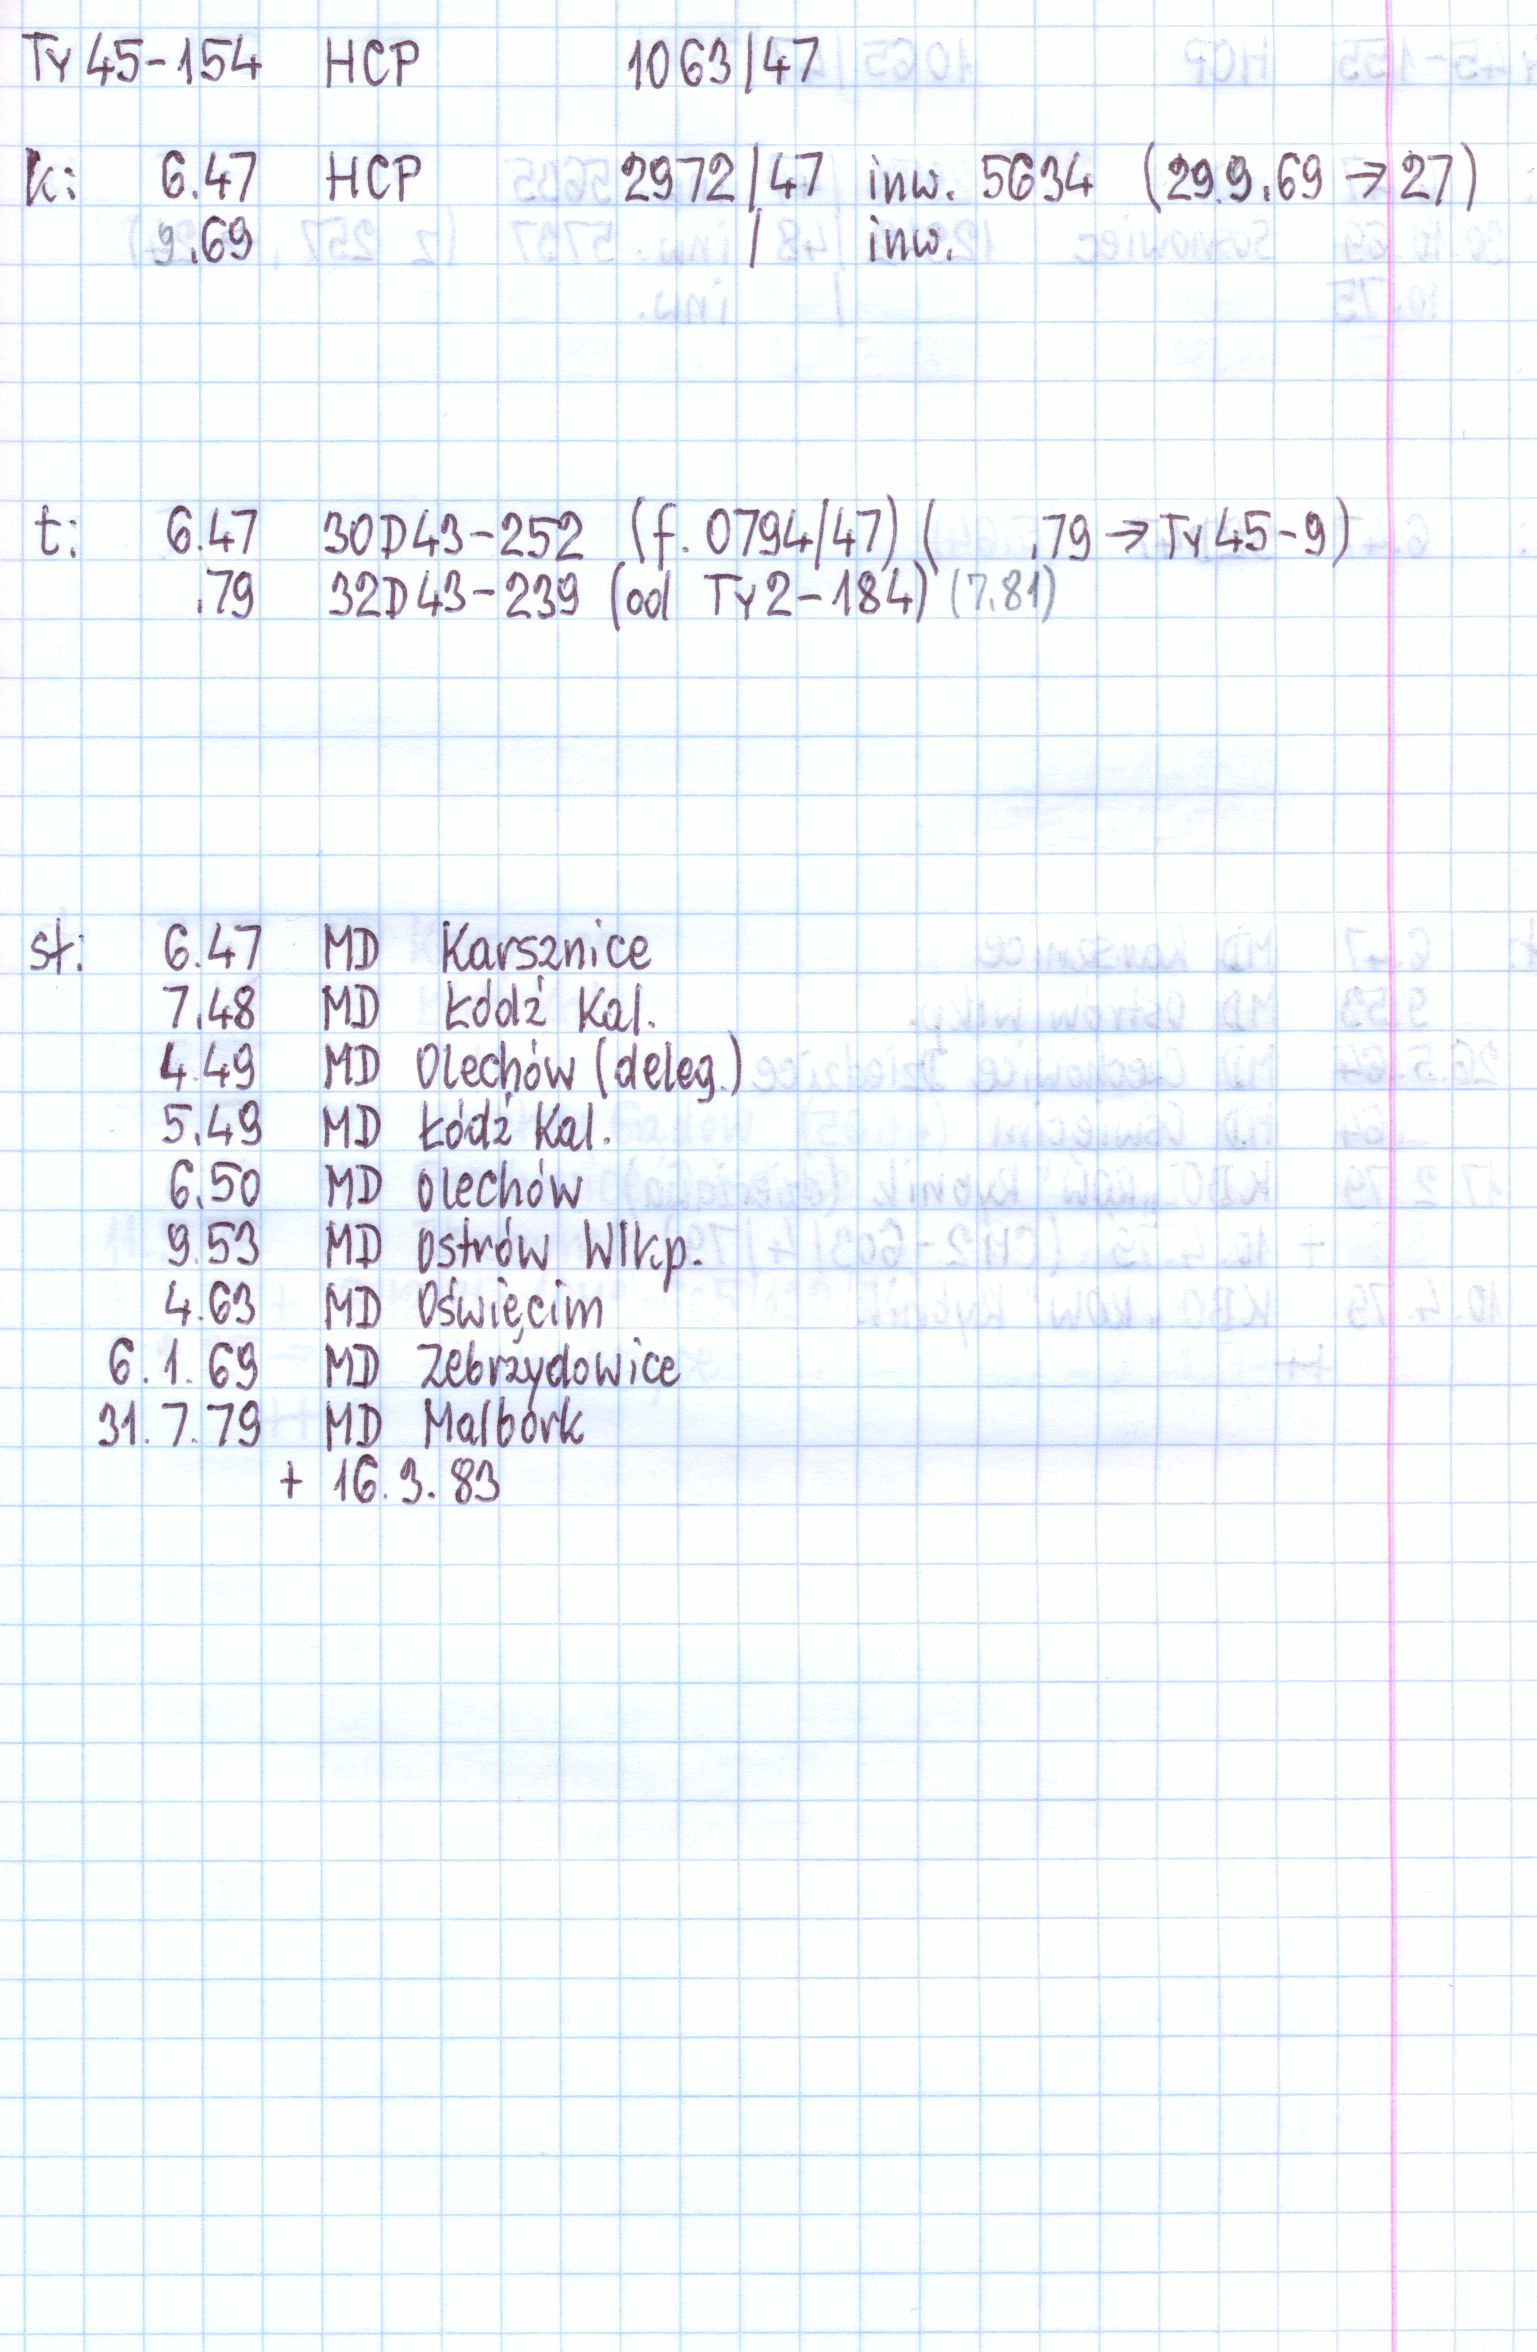 Ty45-154 HCP 1063/47
k: 6.47 HCP 2972/47 inw. 5634 (29.9.69 → 27)
9.69 / inw.
t: 6.47 30D43-252 (f. 0794/47) ( .79 → Ty45-9)
.79 32D43-239 (od Ty2-184) (7.81)
st: 6.47 MD Karsznice
7.48 MD Łódź Kal.
4.49 MD Olechów (deleg.)
5.49 MD Łódź Kal.
6.50 MD Olechów
9.53 MD Ostrów Wlkp.
4.63 MD Oświęcim
6.1.69 MD Zebrzydowice
31.7.79 MD Malbork
+ 16.3.83